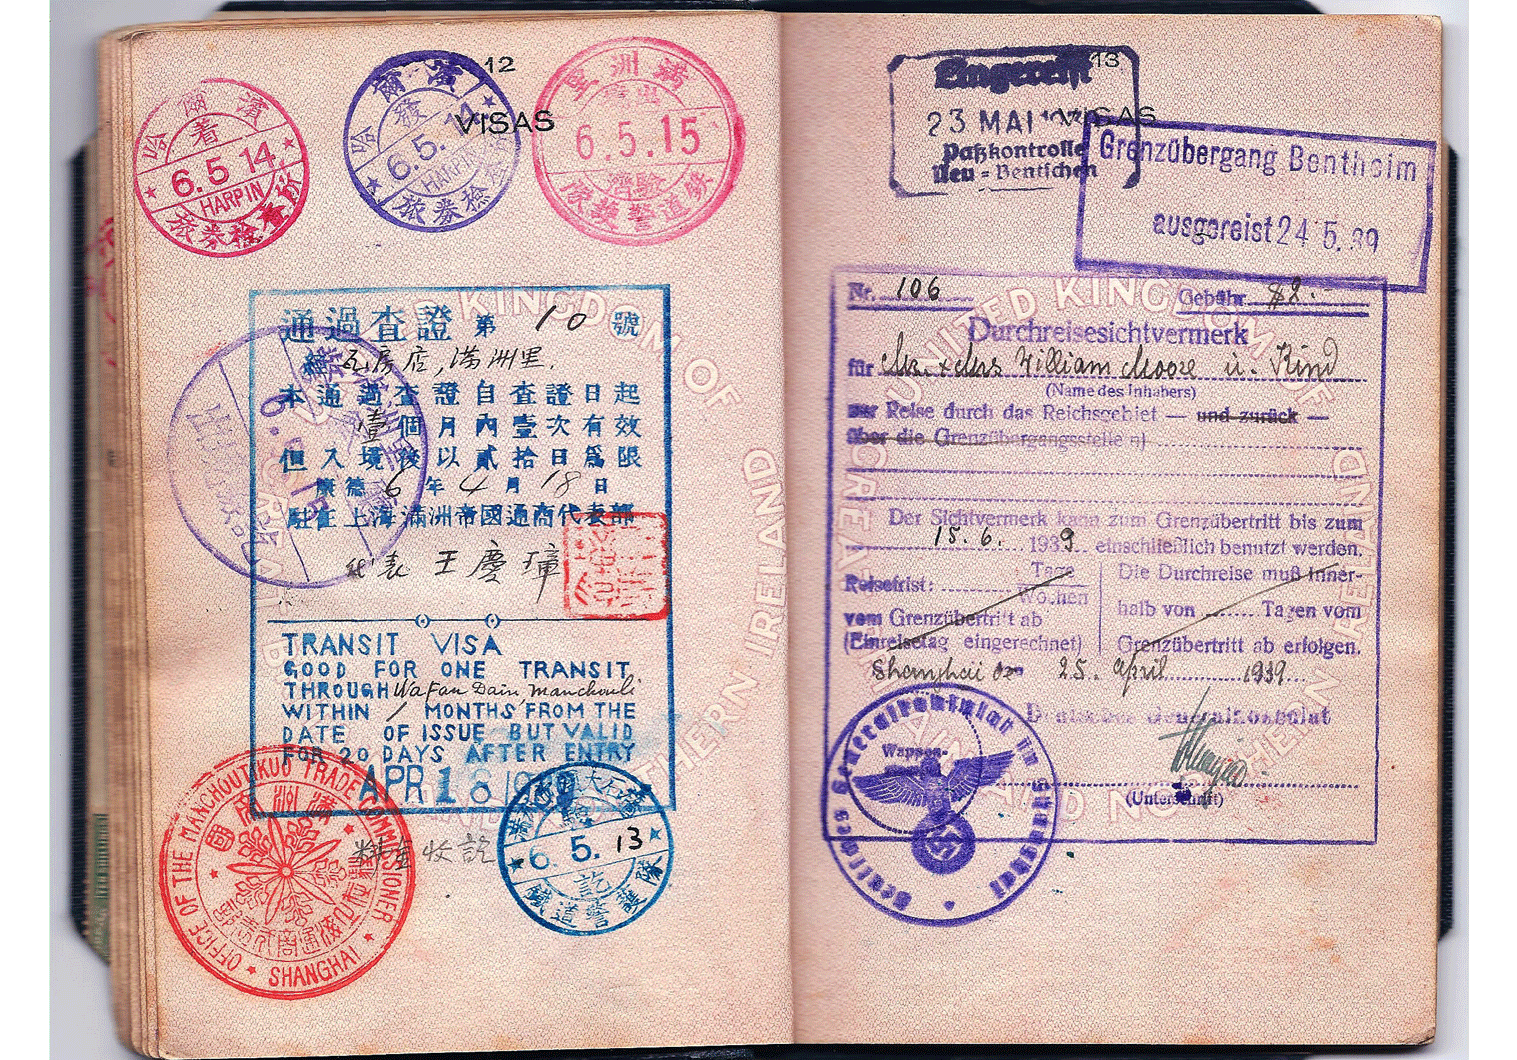 12
VISAS
哈爾濱
着
6.5.14.
HARPIN
旅券檢查
哈爾濱
發
6.5.14
HARPIN
旅券檢
滿洲里
6.5.15
驗濟
鐵道警護隊
通過査證 第 10 號
瓦房店,滿洲里.
本通過査證自査證日起
壹個月內壹次有效
但入境後以貳拾日爲限
康德 6 年 4 月 18 日
駐在上海滿洲帝國通商代表部
代表 王慶璋
TRANSIT VISA
GOOD FOR ONE TRANSIT
THROUGH Wafan Dain, Manchouli
WITHIN 1 MONTHS FROM THE
DATE OF ISSUE BUT VALID
FOR 20 DAYS AFTER ENTRY
APR 18
OFFICE OF THE MANCHOUTIKUO TRADE COMMISSIONER
SHANGHAI
收訖
大石橋
6.5.13
訖
鐵道警護隊
UNITED KINGDOM OF
GREAT BRITAIN AND NORTHERN IRELAND
13
VISAS
Eingereist
23 MAI
Paßkontrolle
Neu-Bentschen
Grenzübergang Bentheim
ausgereist 24 5.39
Nr. 106 Gebühr $2.-
Durchreisesichtvermerk
für Mr. + Mrs William Moore u. Kind
(Name des Inhabers)
zur Reise durch das Reichsgebiet — und zurück —
über die Grenzübergangsstelle n)
Der Sichtvermerk kann zum Grenzübertritt bis zum
15.6. 1939 einschließlich benutzt werden.
Reisefrist: Tage
Wochen
vom Grenzübertritt ab
(Einreisetag eingerechnet)
Die Durchreise muß inner-
halb von ....... Tagen vom
Grenzübertritt ab erfolgen.
Shanghai den 25. April 1939.
Deutsches Generalkonsulat
Wappen-
(Unterschrift)
Deutsches Generalkonsulat in Shanghai
UNITED KINGDOM OF
GREAT BRITAIN AND NORTHERN IRELAND